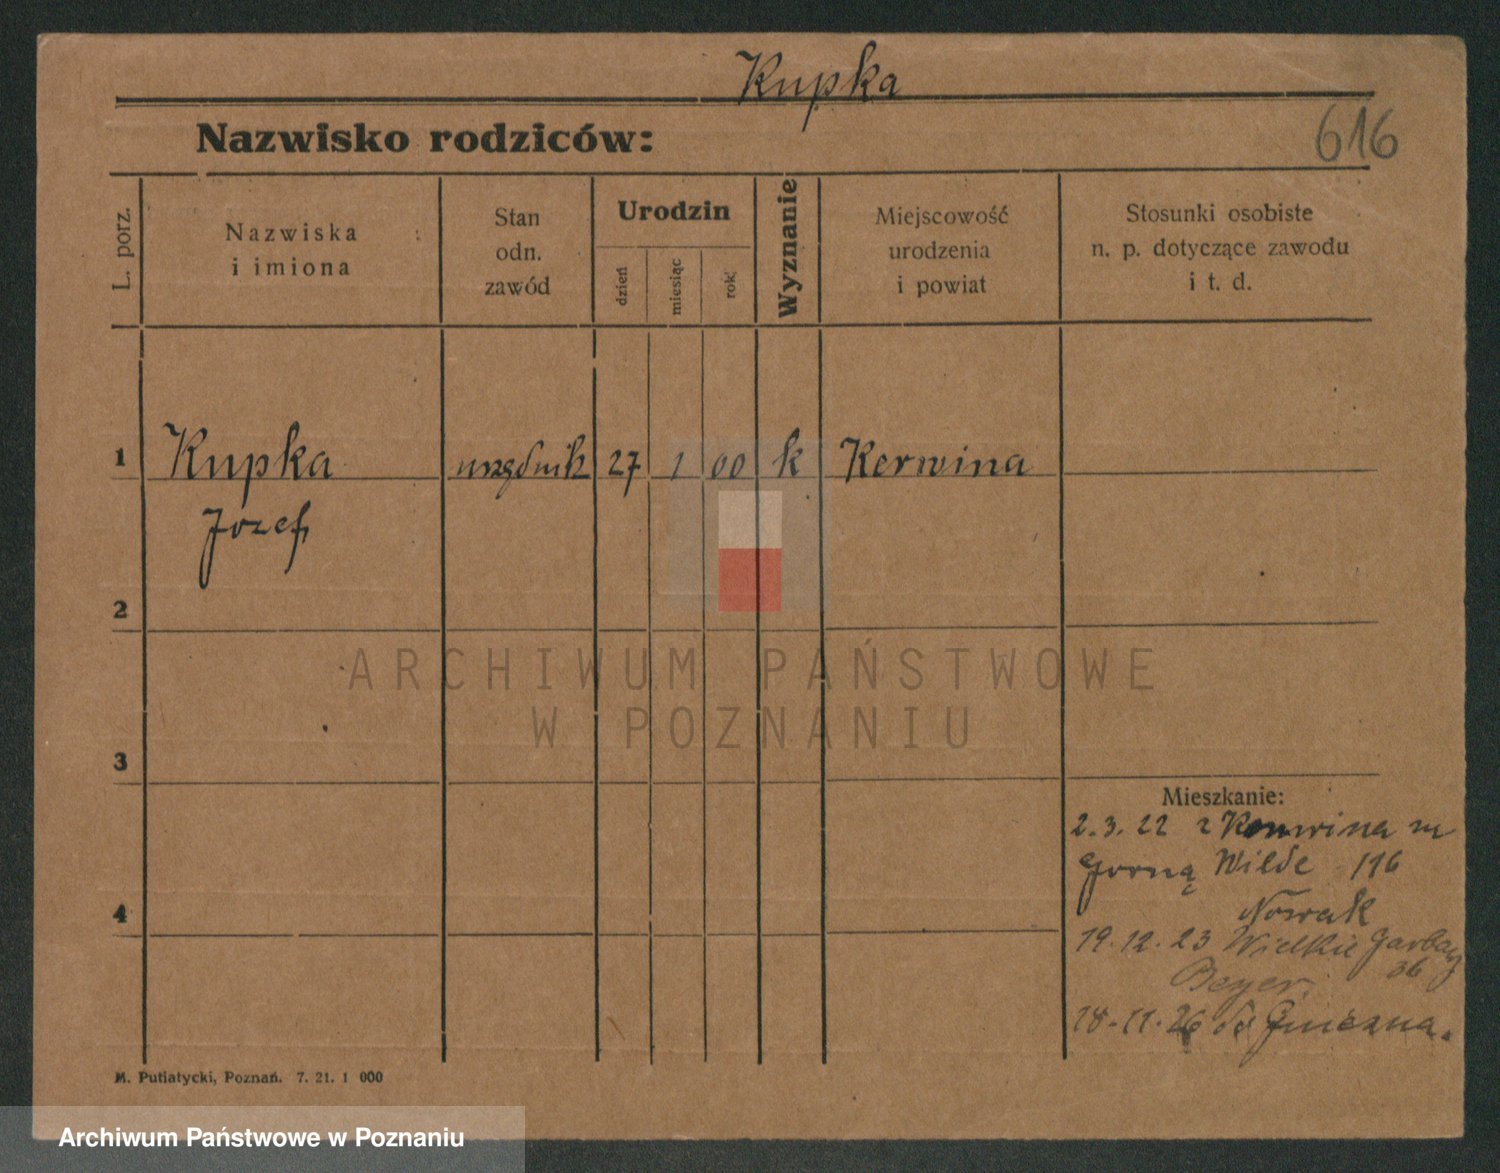 Kupka
Nazwisko rodziców:
616
L. porz.
Nazwiska
i imiona
Stan
odn.
zawód
Urodzin
dzień
miesiąc
rok
Wyznanie
Miejscowość
urodzenia
i powiat
Stosunki osobiste
n. p. dotyczące zawodu
i t. d.
1 Kupka urzędnik 27 1 00 k Kerwina
Jozef
2
ARCHIWUM PAŃSTWOWE
W POZNANIU
3
Mieszkanie:
2.3.22 z
Gorną Wilde 116
4
Nowak
19.12.23 Wielkie Garbary
36
Beyer.
18.11.26 do Gniezna.
M. Putiatycki, Poznań. 7. 21. 1 000
Archiwum Państwowe w Poznaniu